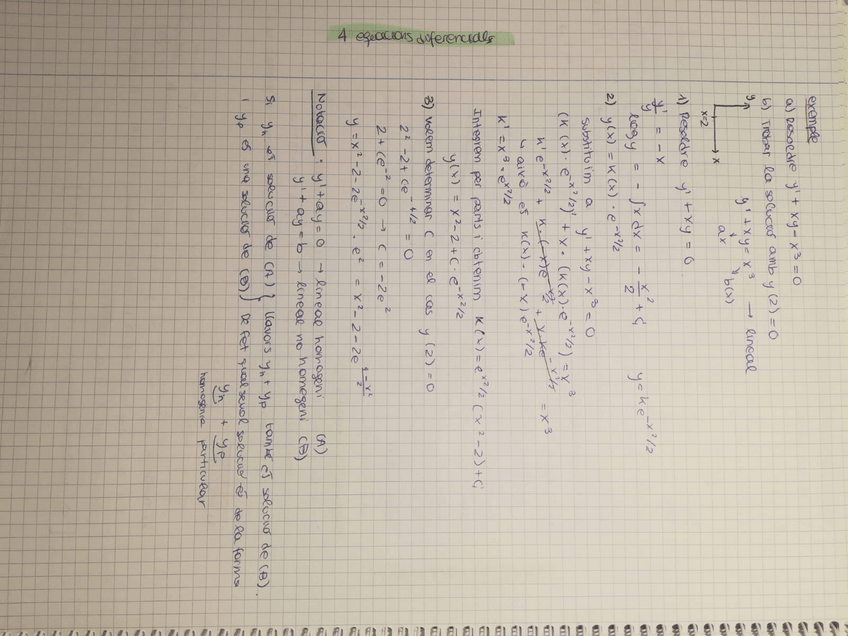 4 equacions diferencials
exemple
a) Resoldre y' + xy - x³ = 0
b) Trobar la solució amb y(2) = 0
y' + xy = x³ → lineal
ax b(x)
y
x
x=2
1) Resoldre y' + xy = 0
y'/y = -x
log y = -∫x dx = -x²/2 + C y = k e^(-x²/2)
2) y(x) = K(x) · e^(-x²/2)
substituim a y' + xy - x³ = 0
(K(x) · e^(-x²/2))' + x · (K(x) · e^(-x²/2)) = x³
K' e^(-x²/2) + K · (-x) e^(-x²/2) + x · K e^(-x²/2) = x³
↳ això és K(x) · (-x) e^(-x²/2)
K' = x³ · e^(x²/2)
Integrem per parts i obtenim K(x) = e^(x²/2) (x² - 2) + C
y(x) = x² - 2 + C · e^(-x²/2)
3) Volem determinar C en el cas y(2) = 0
2² - 2 + C e^(-4/2) = 0
2 + C e^(-2) = 0 → C = -2e²
y = x² - 2 - 2e^(-x²/2) · e² = x² - 2 - 2e^((4-x²)/2)
Notació · y' + ay = 0 → lineal homogeni (A)
y' + ay = b → lineal no homogeni (B)
Si yₕ és solució de (A) } llavors yₕ + yₚ també és solució de (B).
i yₚ és una solució de (B) } De fet qualsevol solució és de la forma
yₕ + yₚ
homogenia particular